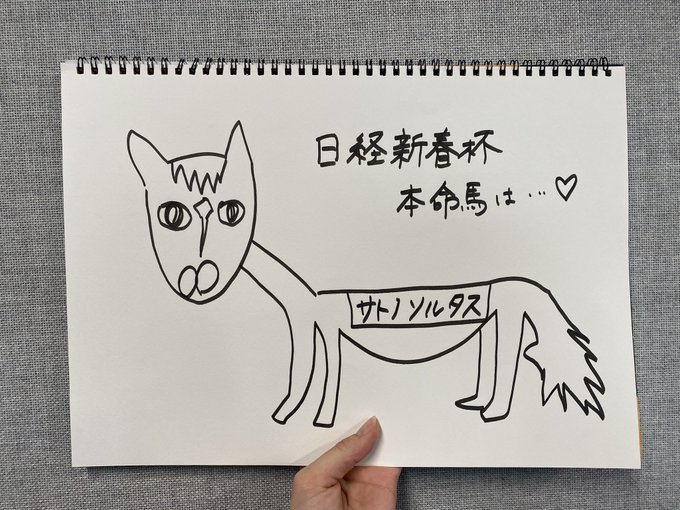 日経新春杯
本命馬は…♡
サトノソルタス